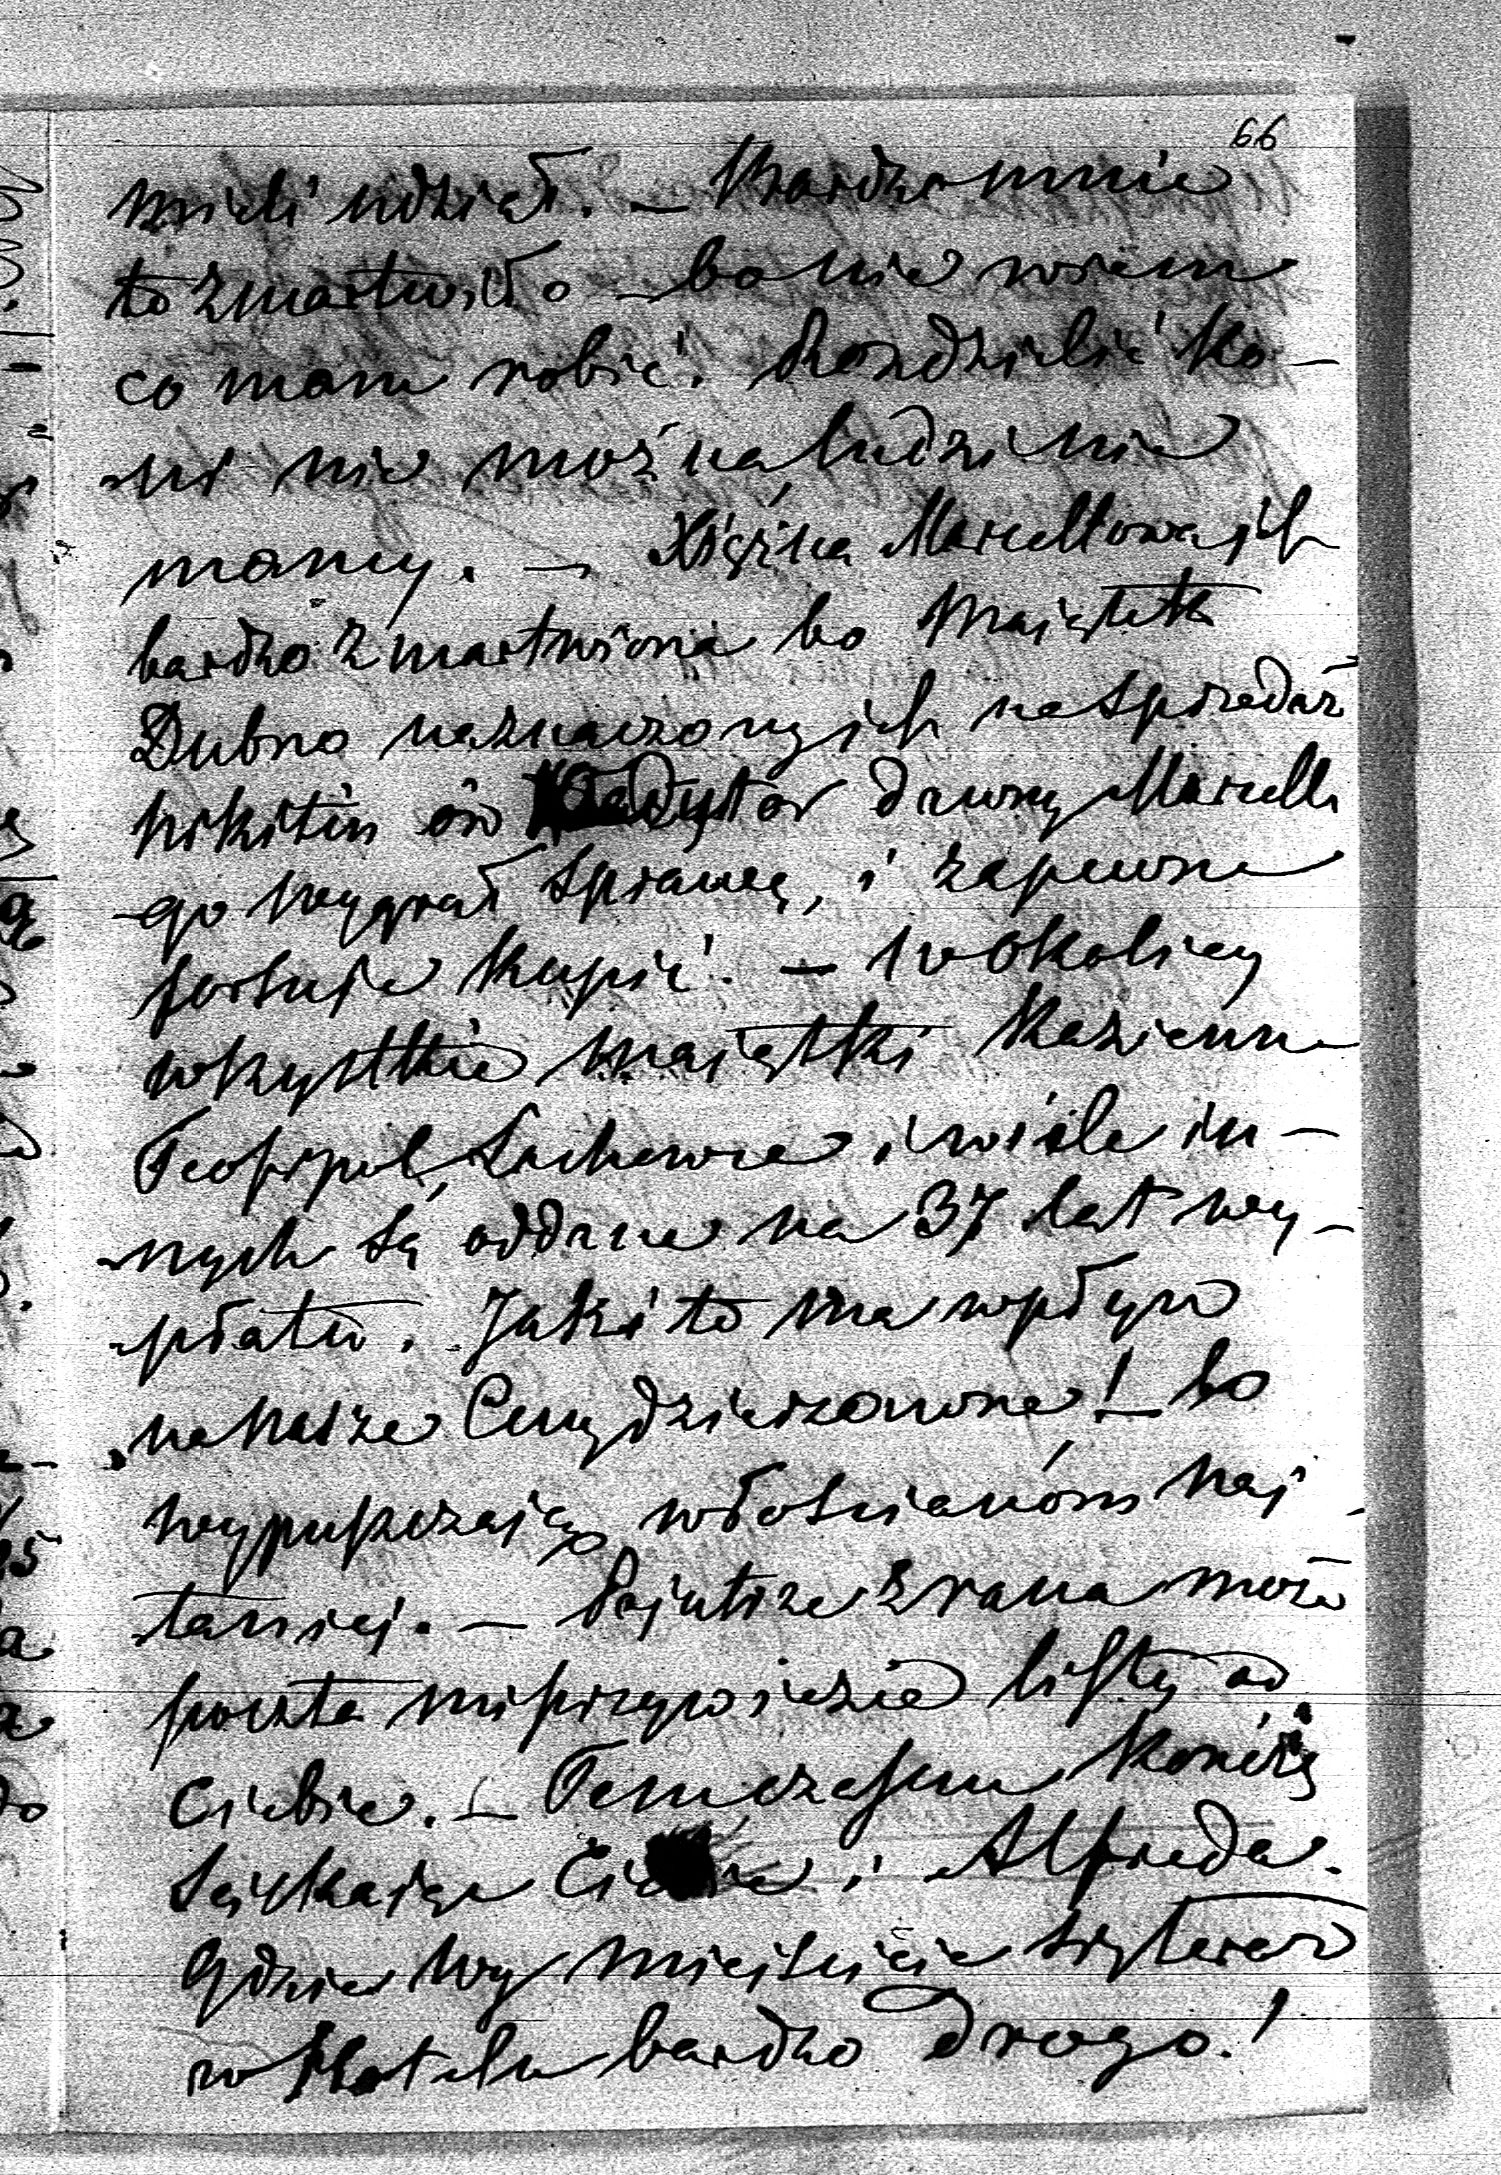 66
mieli udział. — Bardzo mnie
to zmartwiło — bo nie wiem
co mam robić. Rozdzielić ko-
ni nie można ludzi nie
mamy. — Xiężna Marcellowa jest
bardzo zmartwiona bo Majątek
Dubno naznaczony jest na sprzedaż
Nikitin ów Kredytor dawny Marcelle
-go wygrał sprawę, i zapewne
fortuje kupić. — w okolicy
wszystkie majątki Kazienne
Teofipol, Lachowce i wiele in-
-nych są oddane na 37 lat wy-
-płatu. Jaki to ma wpływ
na nasze Ceny dzierzawne! — bo
wypuszczają włościanóm naj
taniej. — Pojutrze z rana może
poczta mi przywiezie listy od
Ciebie. — Temczasem kończę
Sciskając Ciebie i Alfreda.
Gdzie wy mieścicie
w Hotelu bardzo drogo!